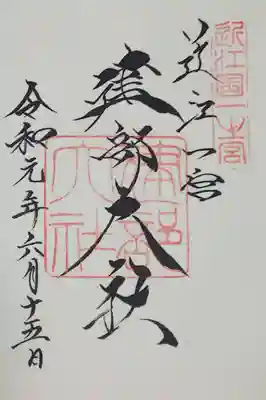 近江国一之宮
近江一宮
建部大社
建部大社
令和元年六月十五日